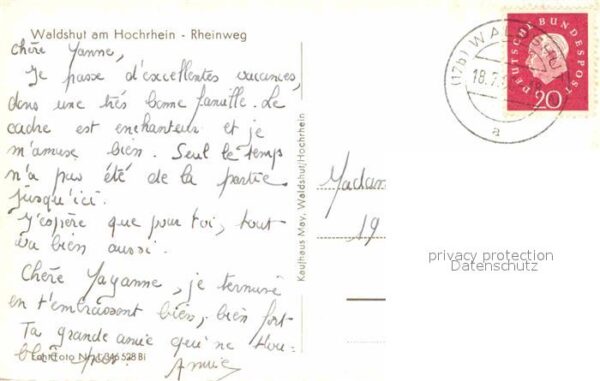 Waldshut am Hochrhein - Rheinweg
Chère Yanne,
Je passe d'excellentes vacances,
dans une très bonne famille. Le
cadre est enchanteur et je
m'amuse bien. Seul le temps
n'a pas été de la partie
jusqu'ici.
J'espère que pour toi, tout
va bien aussi.
Chère Yayanne, je termine
en t'embrassant bien, bien fort
Ta grande amie qui ne t'ou-
blie pas. Annie
Kaufhaus May, Waldshut/Hochrhein
(17b) WALDSHUT
18.7.
a
DEUTSCHE BUNDESPOST
20
Madam
19
privacy protection
Datenschutz